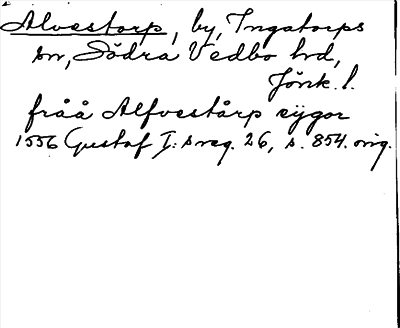 Alvestorp, by, Ingatorps
sn, Södra Vedbo hd,
Jönk. l.
fråå Alfvestårp eÿgor
1556 Gustaf I:s reg. 26, s. 854. orig.